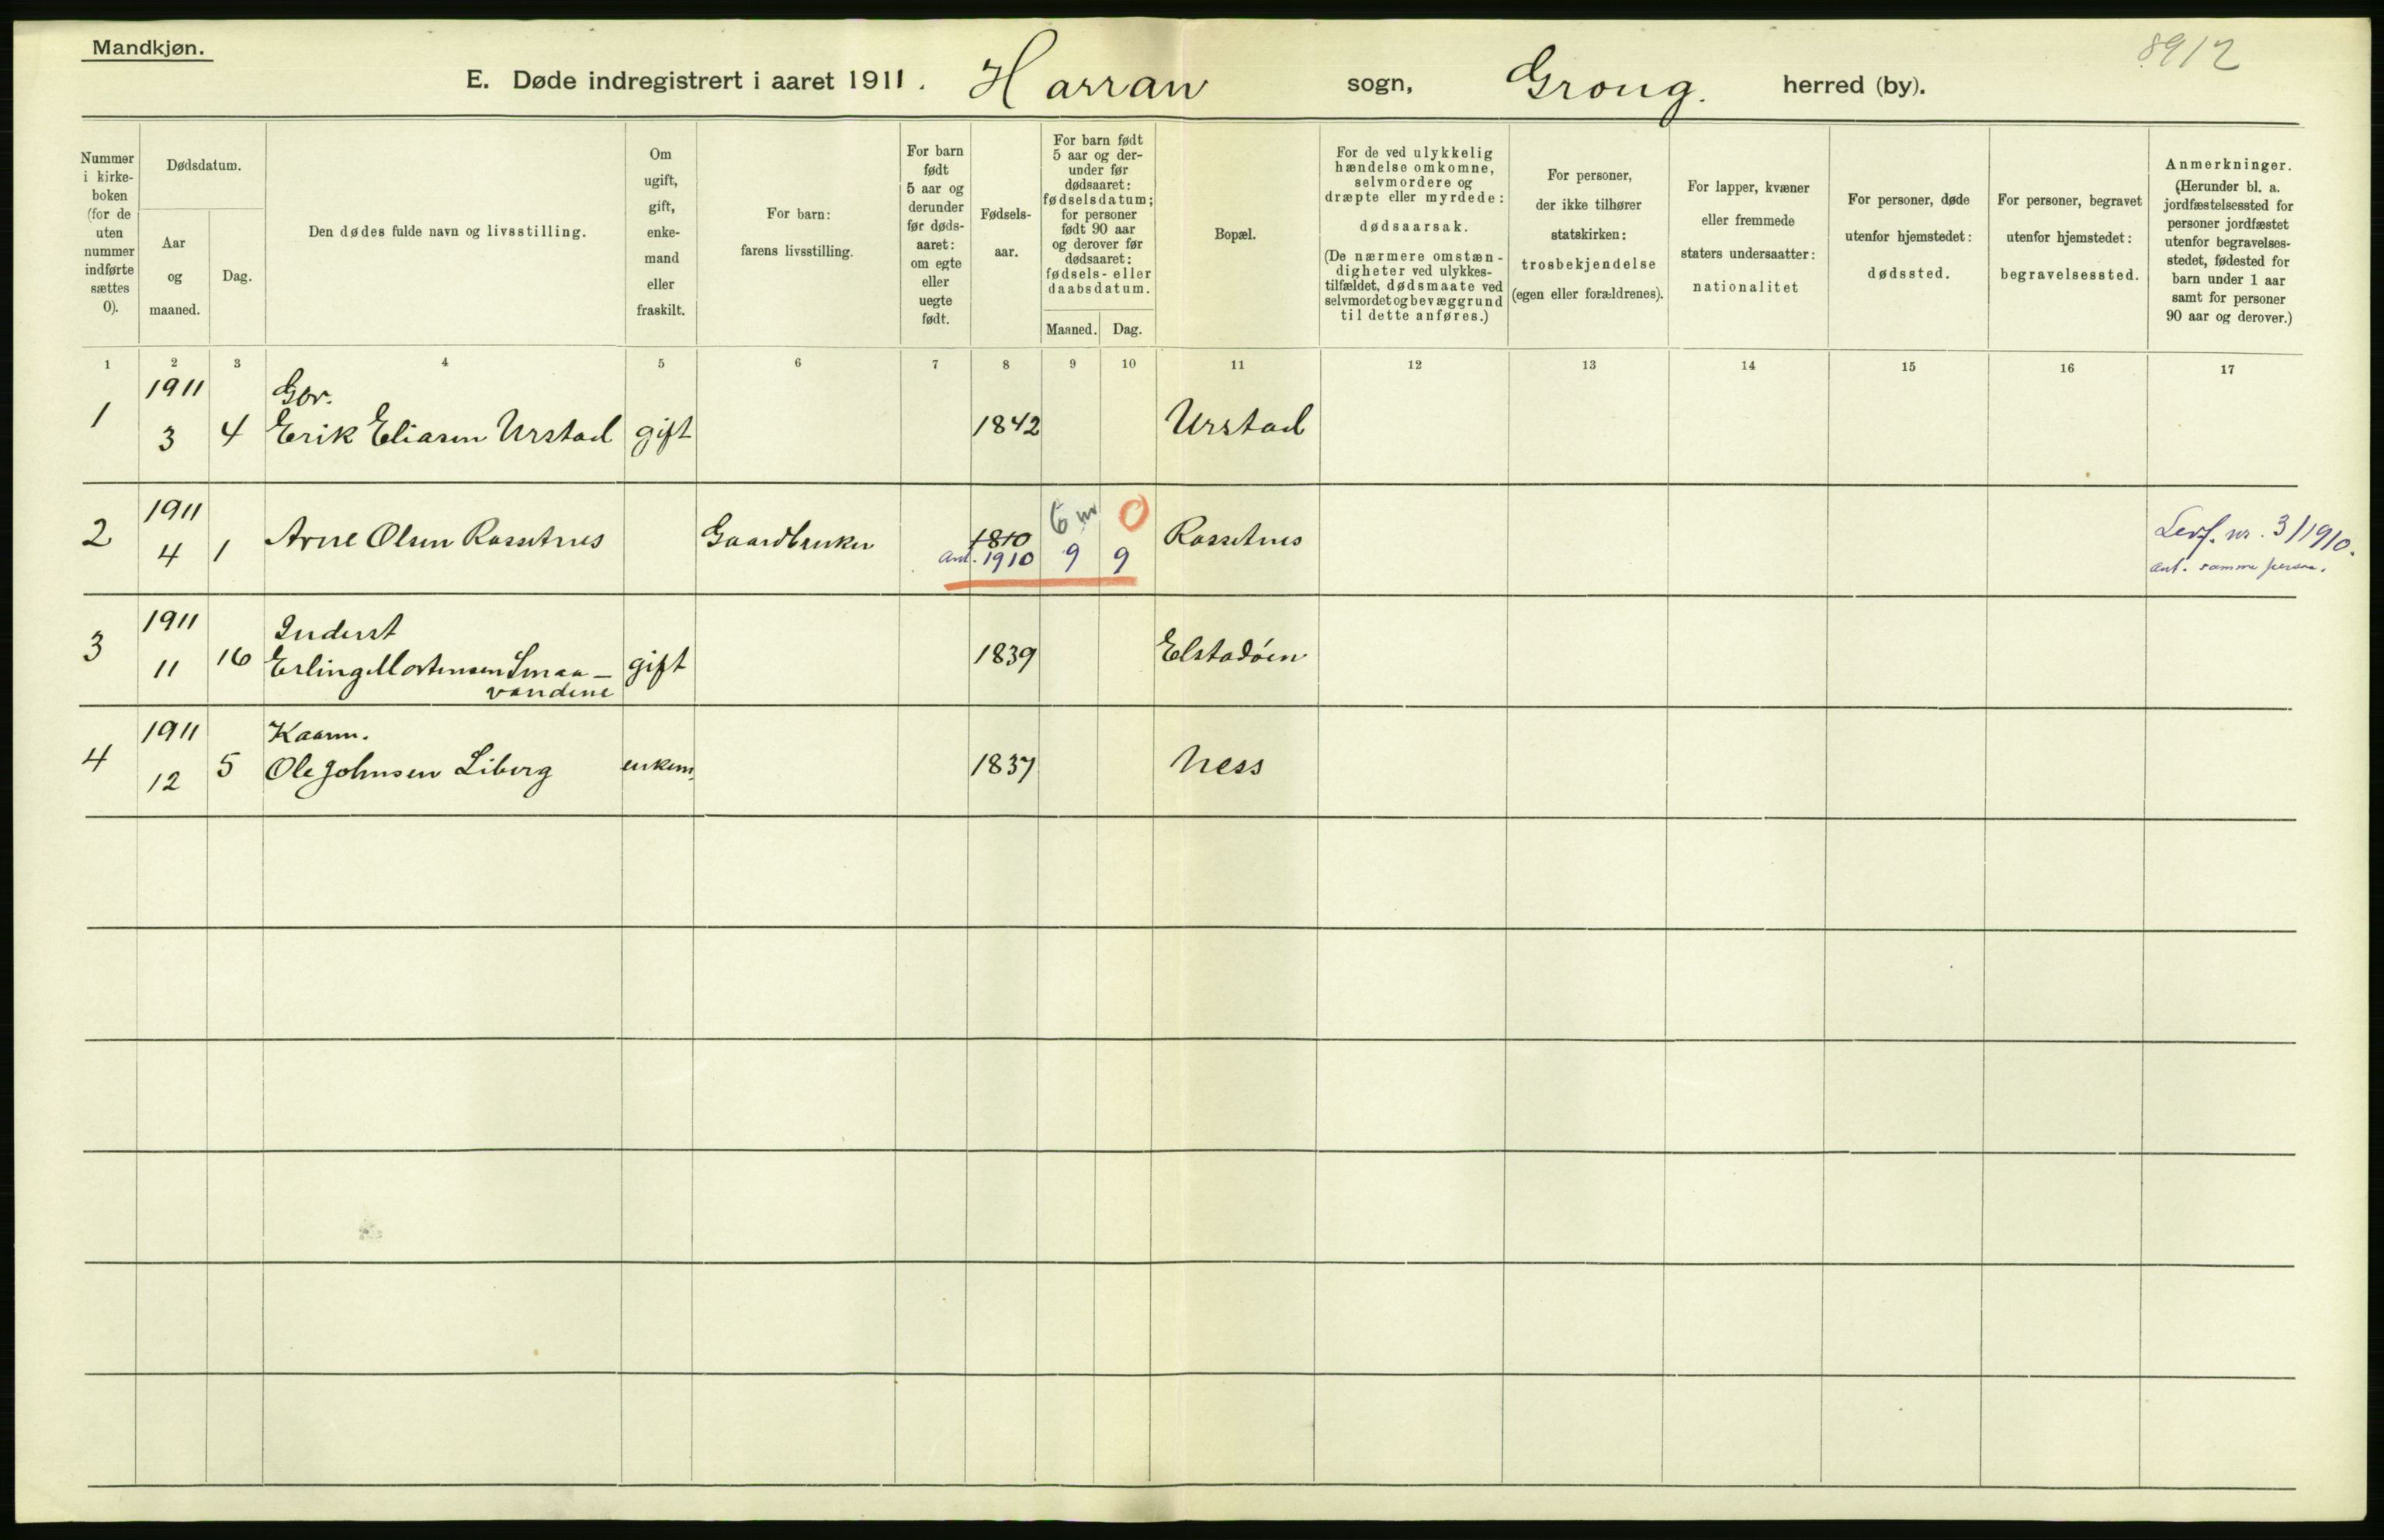 Mandkjøn.
8912
E. Døde indregistrert i aaret 1911. Harran sogn, Grong. herred (by).
Nummer i kirke- boken (for de uten nummer indførte sættes 0).
Dødsdatum.
Aar og maaned.
Dag.
Den dødes fulde navn og livsstilling.
Om ugift, gift, enke- mand eller fraskilt.
For barn: farens livsstilling.
For barn født 5 aar og derunder før døds- aaret: om egte eller uegte født.
Fødsels- aar.
For barn født 5 aar og der- under før dødsaaret: fødselsdatum; for personer født 90 aar og derover før dødsaaret: fødsels- eller daabsdatum.
Maaned. Dag.
Bopæl.
For de ved ulykkelig hændelse omkomne, selvmordere og dræpte eller myrdede: dødsaarsak. (De nærmere omstæn- digheter ved ulykkes- tilfældet, dødsmaate ved selvmordet og bevæggrund til dette anføres.)
For personer, der ikke tilhører statskirken: trosbekjendelse (egen eller forældrenes).
For lapper, kvæner eller fremmede staters undersaatter: nationalitet
For personer, døde utenfor hjemstedet: dødssted.
For personer, begravet utenfor hjemstedet: begravelsessted.
Anmerkninger. (Herunder bl. a. jordfæstelsessted for personer jordfæstet utenfor begravelses- stedet, fødested for barn under 1 aar samt for personer 90 aar og derover.)
1 2 3 4 5 6 7 8 9 10 11 12 13 14 15 16 17
1911 Gbr.
1 3 4 Erik Eliasen Urstad gift 1842 Urstad
1911 6 m 0
2 4 1 Arne Olsen Rassetnes Gaardbruker 1810 Rassetnes Levf. nr. 3/1910.
ant. 1910 9 9 ant. samme person.
1911 Inderst
3 11 16 Erling Mortensen Smaa- gift 1839 Elstadøen
vandene
1911 Kaarm.
4 12 5 Ole Johnsen Liberg enkem. 1837 Ness